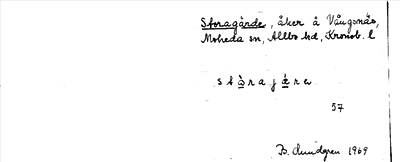 Storagärde, åker å Vångsnäs,
Moheda sn, Allbo hd, Kronob. l
stòrajǽrə
57
B. Lundgren 1969